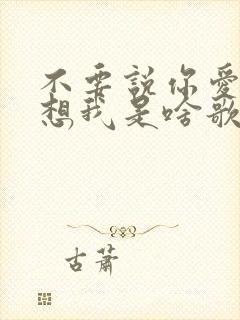 不要説你愛
想我是啥歌
古蕭